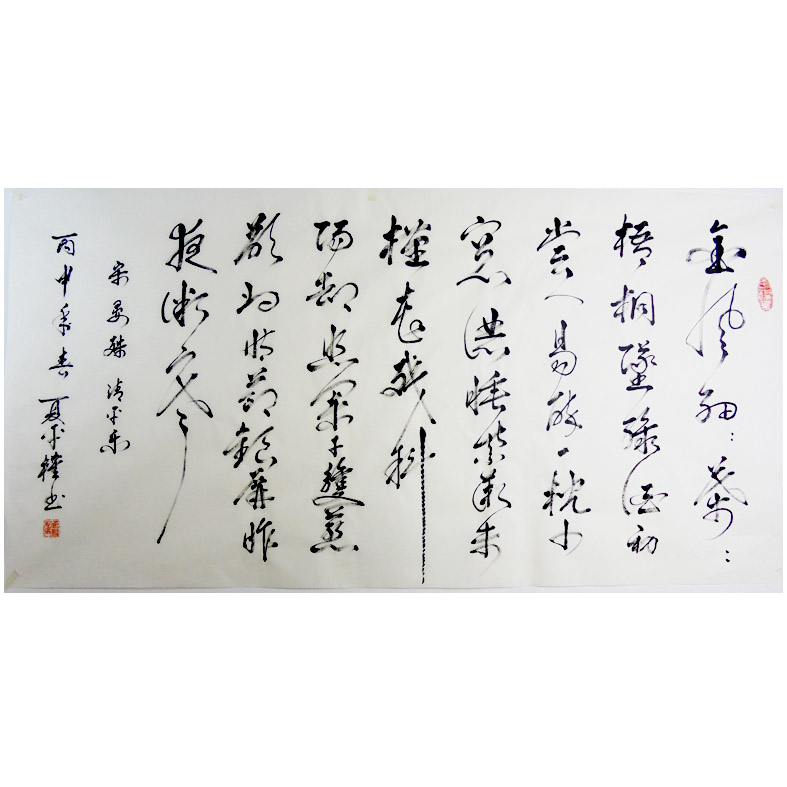 金風細:葉:
梧桐墜綠酒初
嘗人易醉一枕小
窗濃睡紫薇朱
槿花殘斜
陽卻照闌干雙燕
欲歸時節銀屏昨
夜微寒
宋晏殊清平樂
丙申季春 夏 书